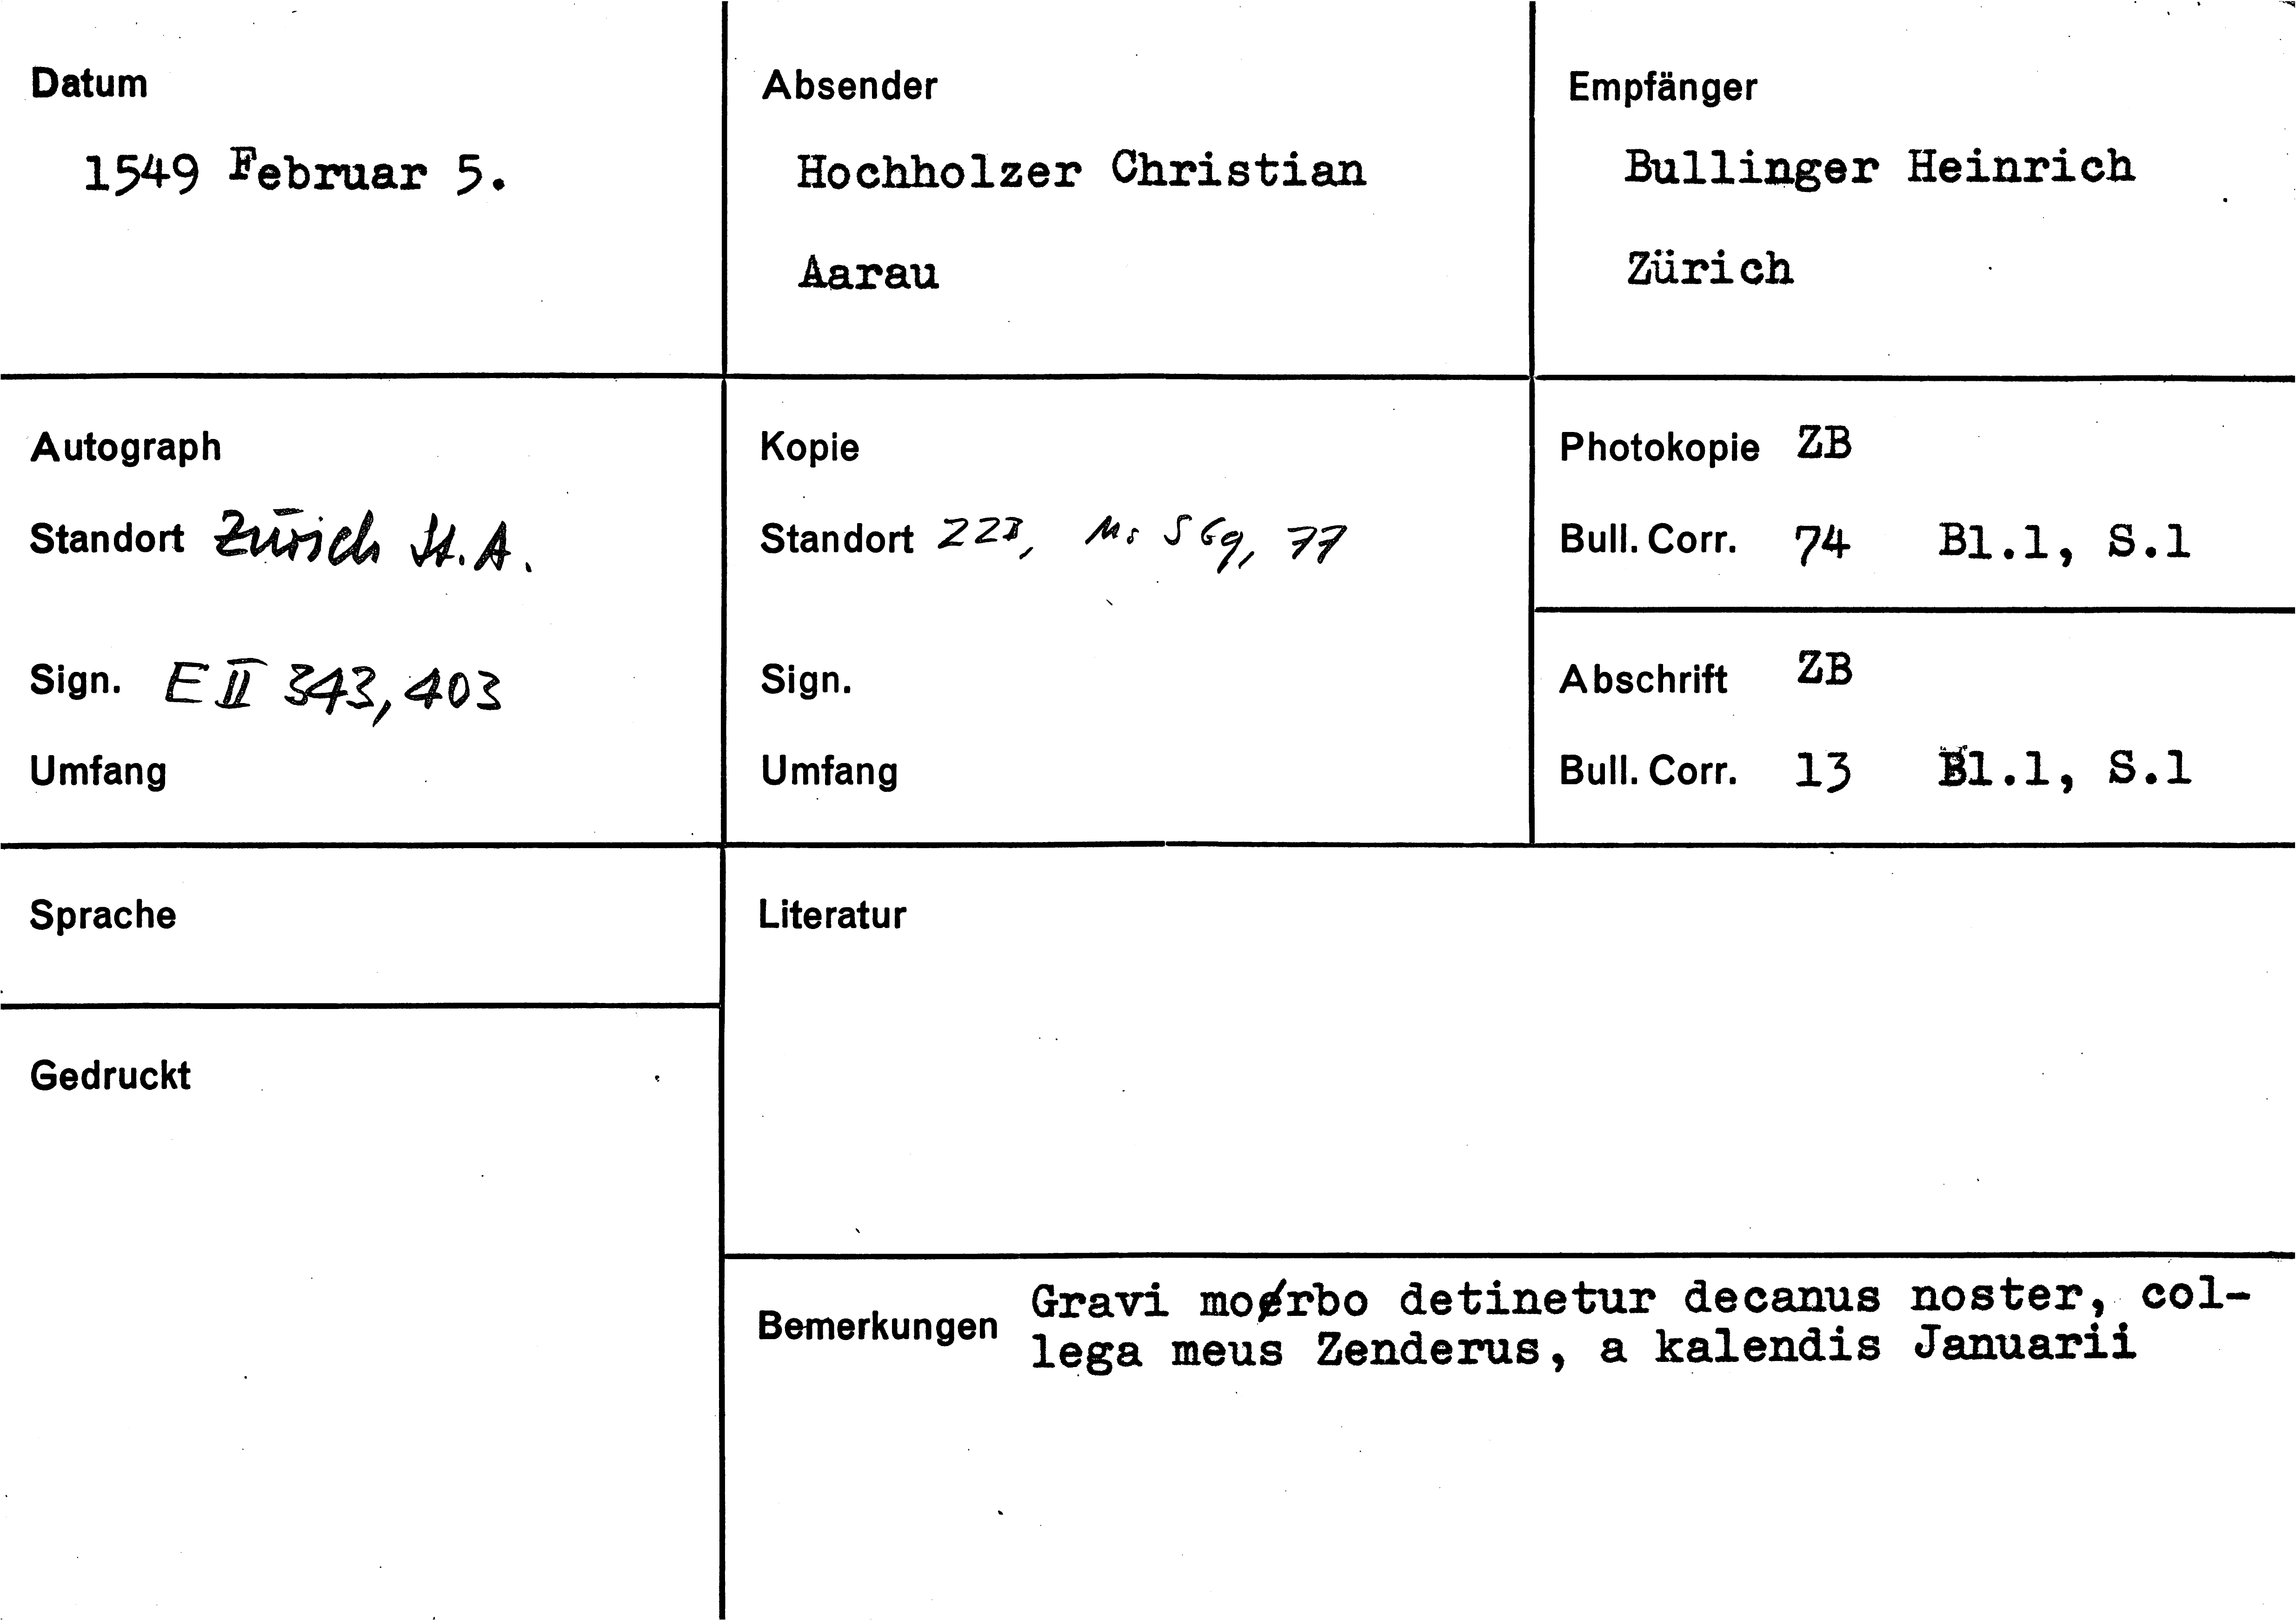 Datum
1549 Februar 5.
Absender
Hochholzer Christian
Aarau
Empfänger
Bullinger Heinrich
Zürich
Autograph
Standort Zürich St. A.
Sign. E II 343, 403
Umfang
Kopie
Standort ZZB, Ms S 69, 77
Sign.
Umfang
Photokopie ZB
Bull. Corr. 74 Bl.1, S.1
Abschrift ZB
Bull. Corr. 13 Bl.1, S.1
Sprache
Literatur
Gedruckt
Bemerkungen Gravi morbo detinetur decanus noster, col-
lega meus Zenderus, a kalendis Januarii